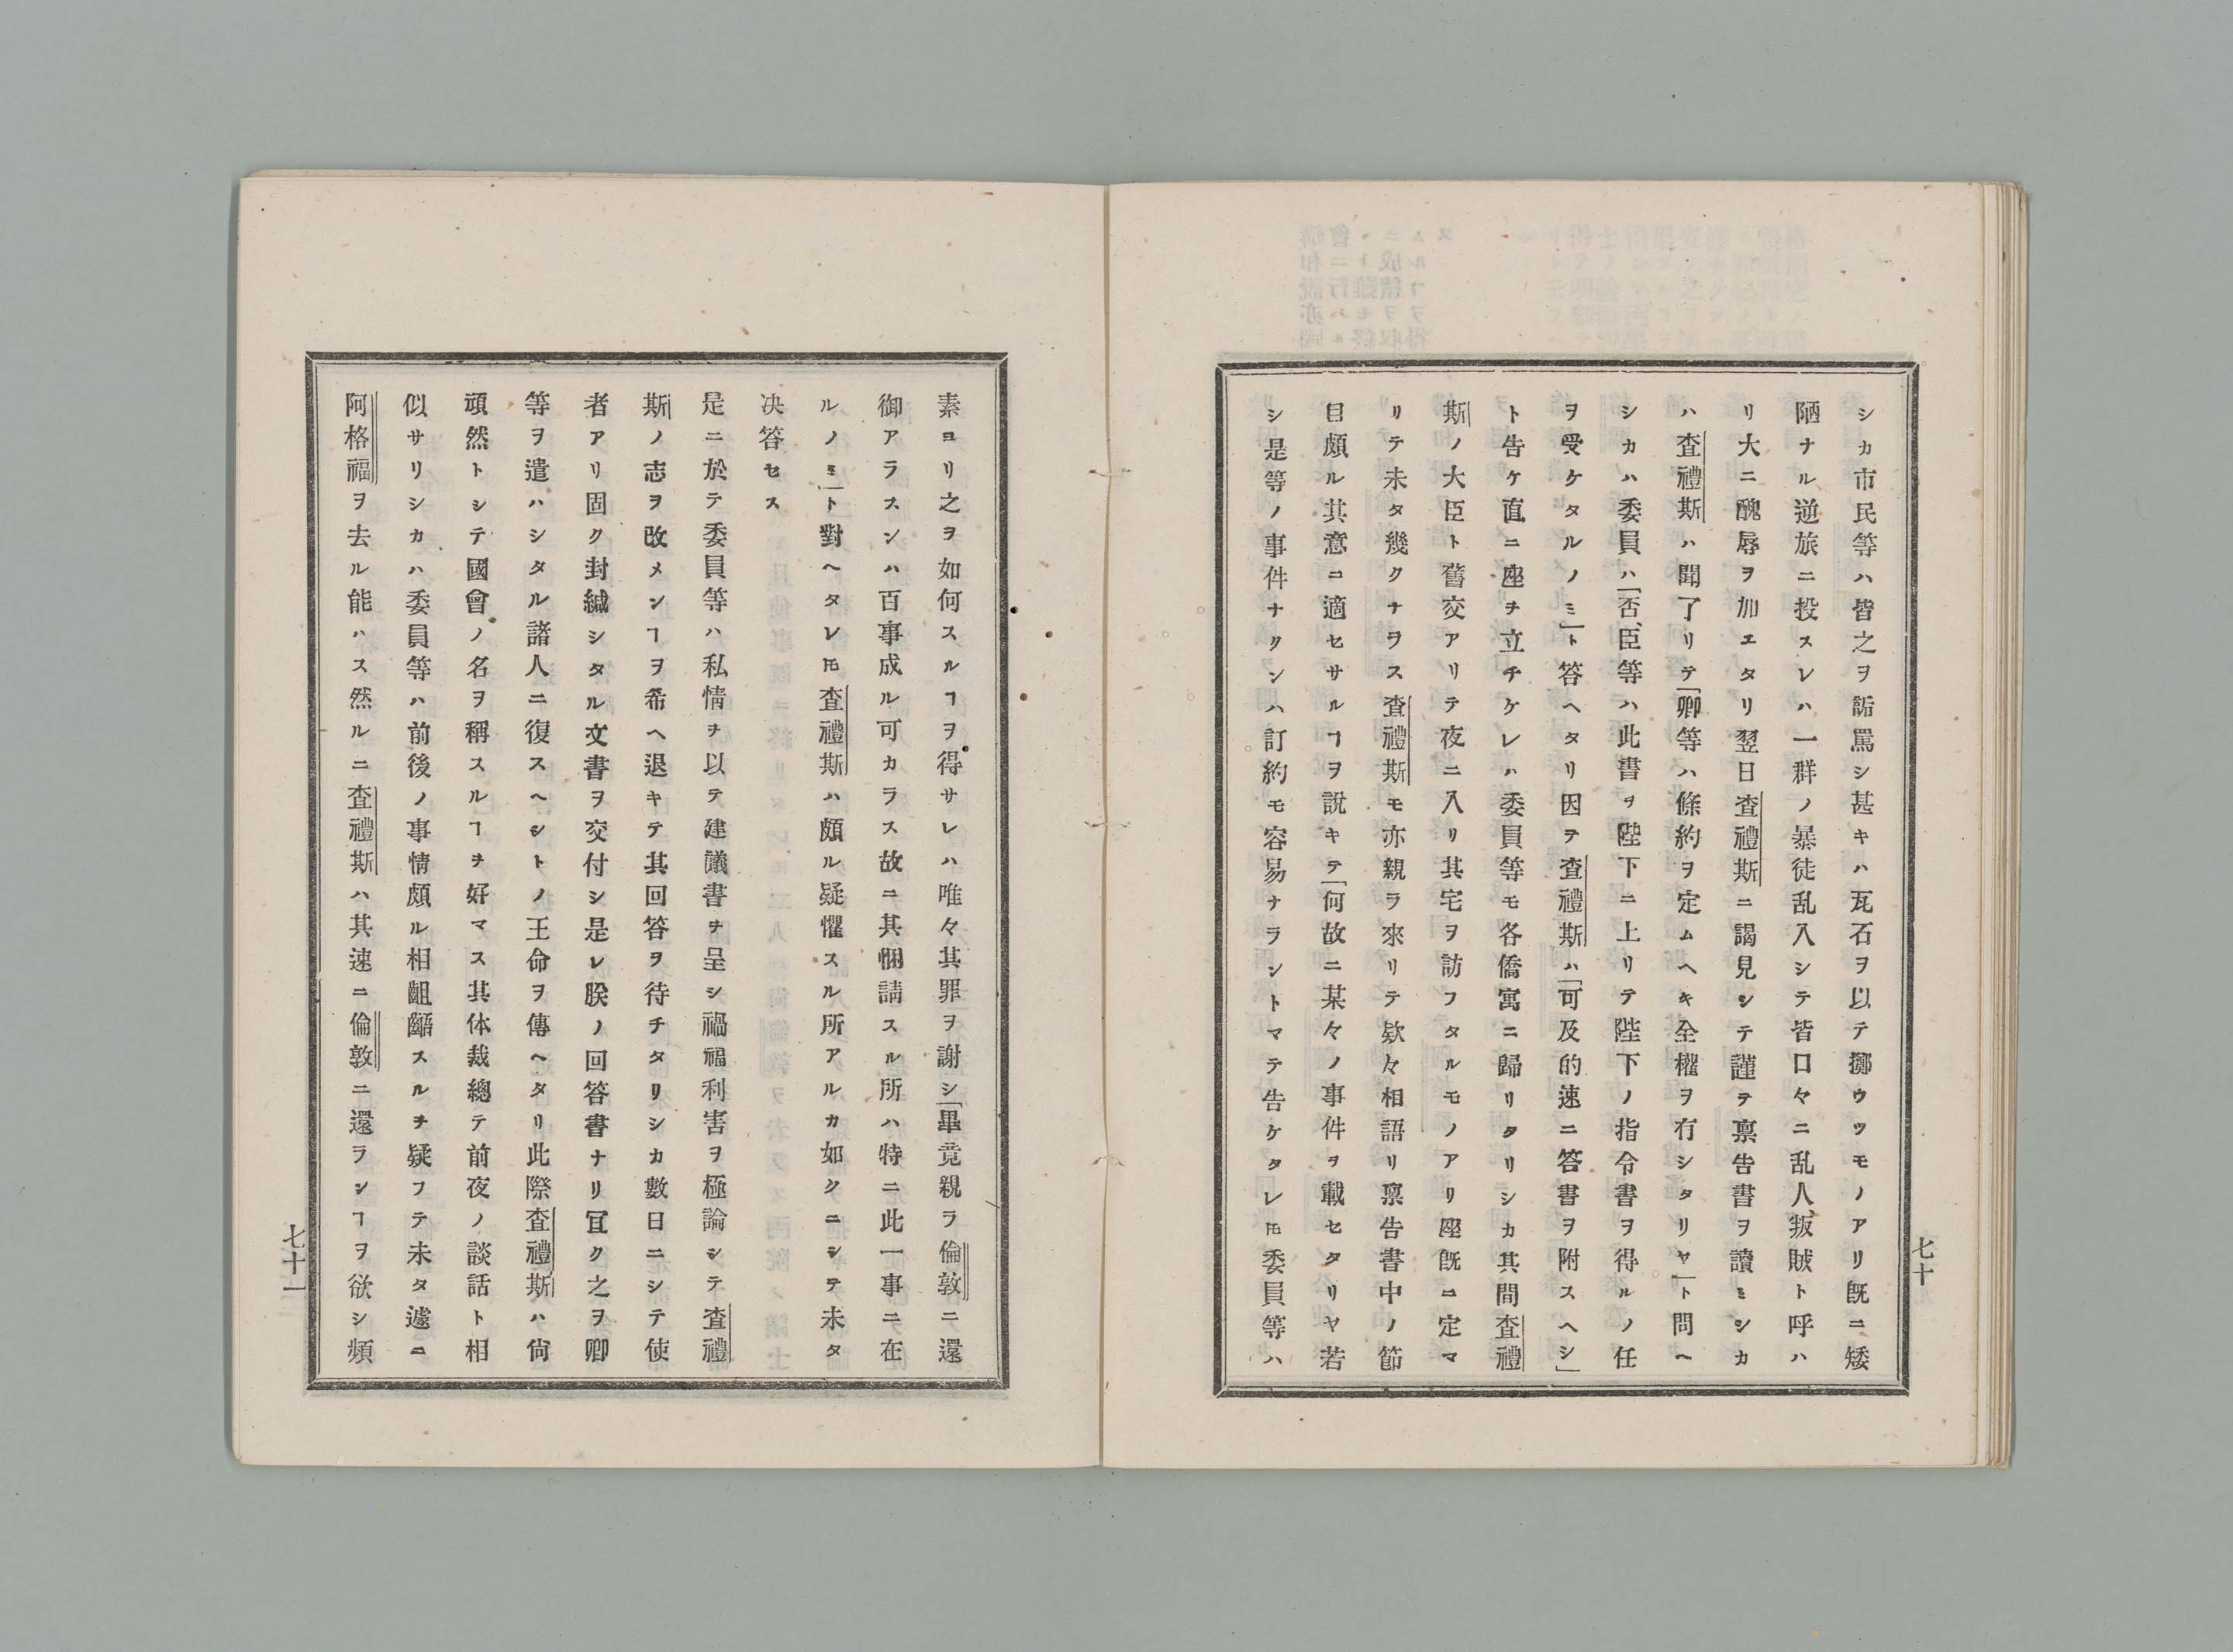 シカ市民等ハ皆之ヲ詬罵シ甚キハ瓦石ヲ以テ擲ウツモノアリ既ニ矮
陋ナル逆旅ニ投スレハ一群ノ暴徒乱入シテ皆口々ニ乱人、叛賊ト呼ハ
リ大ニ醜辱ヲ加エタリ翌日査禮斯ニ謁見シテ謹テ禀告書ヲ讀ミシカ
ハ査禮斯ハ聞了リテ「卿等ハ條約ヲ定ムヘキ全權ヲ有シタリヤ」ト問ヘ
シカハ委員ハ「否、臣等ハ此書ヲ陛下ニ上リテ陛下ノ指令書ヲ得ルノ任
ヲ受ケタルノミ」ト答ヘタリ因テ査禮斯ハ「可及的速ニ答書ヲ附スヘシ」
ト告ケ直ニ座ヲ立チケレハ委員等モ各僑寓ニ歸リタリシカ其間査禮
斯ノ大臣ト舊交アリテ夜ニ入リ其宅ヲ訪フタルモノアリ座既ニ定マ
リテ未タ幾クナラス査禮斯モ亦親ラ來リテ欵々相語リ禀告書中ノ節
目頗ル其意ニ適セサルヿヲ說キテ「何故ニ某々ノ事件ヲ載セタリヤ若
シ是等ノ事件ナクンハ訂約モ容易ナラントマテ告ケタレ𪜈委員等ハ
七十
素ヨリ之ヲ如何スルヿヲ得サレハ唯々其罪ヲ謝シ「畢竟親ラ倫敦ニ還
御アラスンハ百事成ル可カラス故ニ其悃請スル所ハ特ニ此一事ニ在
ルノミ」ト對ヘタレ𪜈査禮斯ハ頗ル疑懼スル所アルカ如クニシテ未タ
决答セス
是ニ於テ委員等ハ私情ヲ以テ建議書ヲ呈シ禍福利害ヲ極論シテ査禮
斯ノ志ヲ改メンヿヲ希ヘ退キテ其回答ヲ待チタリシカ數日ニシテ使
者アリ固ク封緘シタル文書ヲ交付シ是レ朕ノ回答書ナリ冝ク之ヲ卿
等ヲ遣ハシタル諸人ニ復スヘシトノ王命ヲ傳ヘタリ此際査禮斯ハ尙
頑然トシテ國會ノ名ヲ稱スルヿヲ好マス其体裁總テ前夜ノ談話ト相
似サリシカハ委員等ハ前後ノ事情頗ル相齟齬スルヲ疑フテ未タ遽ニ
阿格福ヲ去ル能ハス然ルニ査禮斯ハ其速ニ倫敦ニ還ランヿヲ欲シ頻
七十一